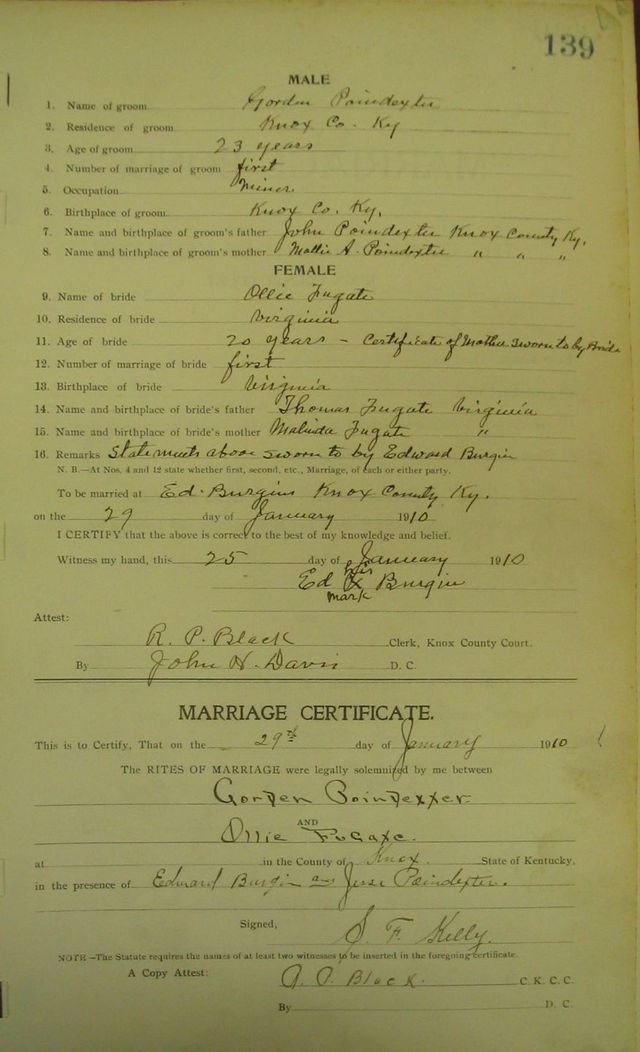 139
MALE
1. Name of groom Gorden Poindexter
2. Residence of groom Knox Co. Ky
3. Age of groom 23 years
4. Number of marriage of groom first
5. Occupation Miner
6. Birthplace of groom Knox Co. Ky.
7. Name and birthplace of groom's father John Poindexter Knox County Ky.
8. Name and birthplace of groom's mother Mollie A. Poindexter " " "
FEMALE
9. Name of bride Ollie Fugate
10. Residence of bride Virginia
11. Age of bride 20 years - Certificate of Mother sworn to by Bride
12. Number of marriage of bride first
13. Birthplace of bride Virginia
14. Name and birthplace of bride's father Thomas Fugate Virginia
15. Name and birthplace of bride's mother Malinda Fugate "
16. Remarks Statements above sworn to by Edward Burgin
N. B.—At Nos. 4 and 12 state whether first, second, etc., Marriage, of each or either party.
To be married at Ed. Burgins Knox County Ky.
on the 29 day of January 1910
I CERTIFY that the above is correct to the best of my knowledge and belief.
Witness my hand, this 25 day of January 1910
his
Ed X Burgin
mark
Attest:
R. P. Black Clerk, Knox County Court.
By John H. Davis D. C.
MARRIAGE CERTIFICATE.
This is to Certify, That on the 29th day of January 1910
The RITES OF MARRIAGE were legally solemnized by me between
Gorden Poindexter
AND
Ollie Fugate.
at in the County of Knox. State of Kentucky,
in the presence of Edward Burgin and Jesse Poindexter.
Signed, S. F. Kelly.
NOTE—The Statute requires the names of at least two witnesses to be inserted in the foregoing certificate.
A Copy Attest: R. P. Black. C. K. C. C.
By D. C.